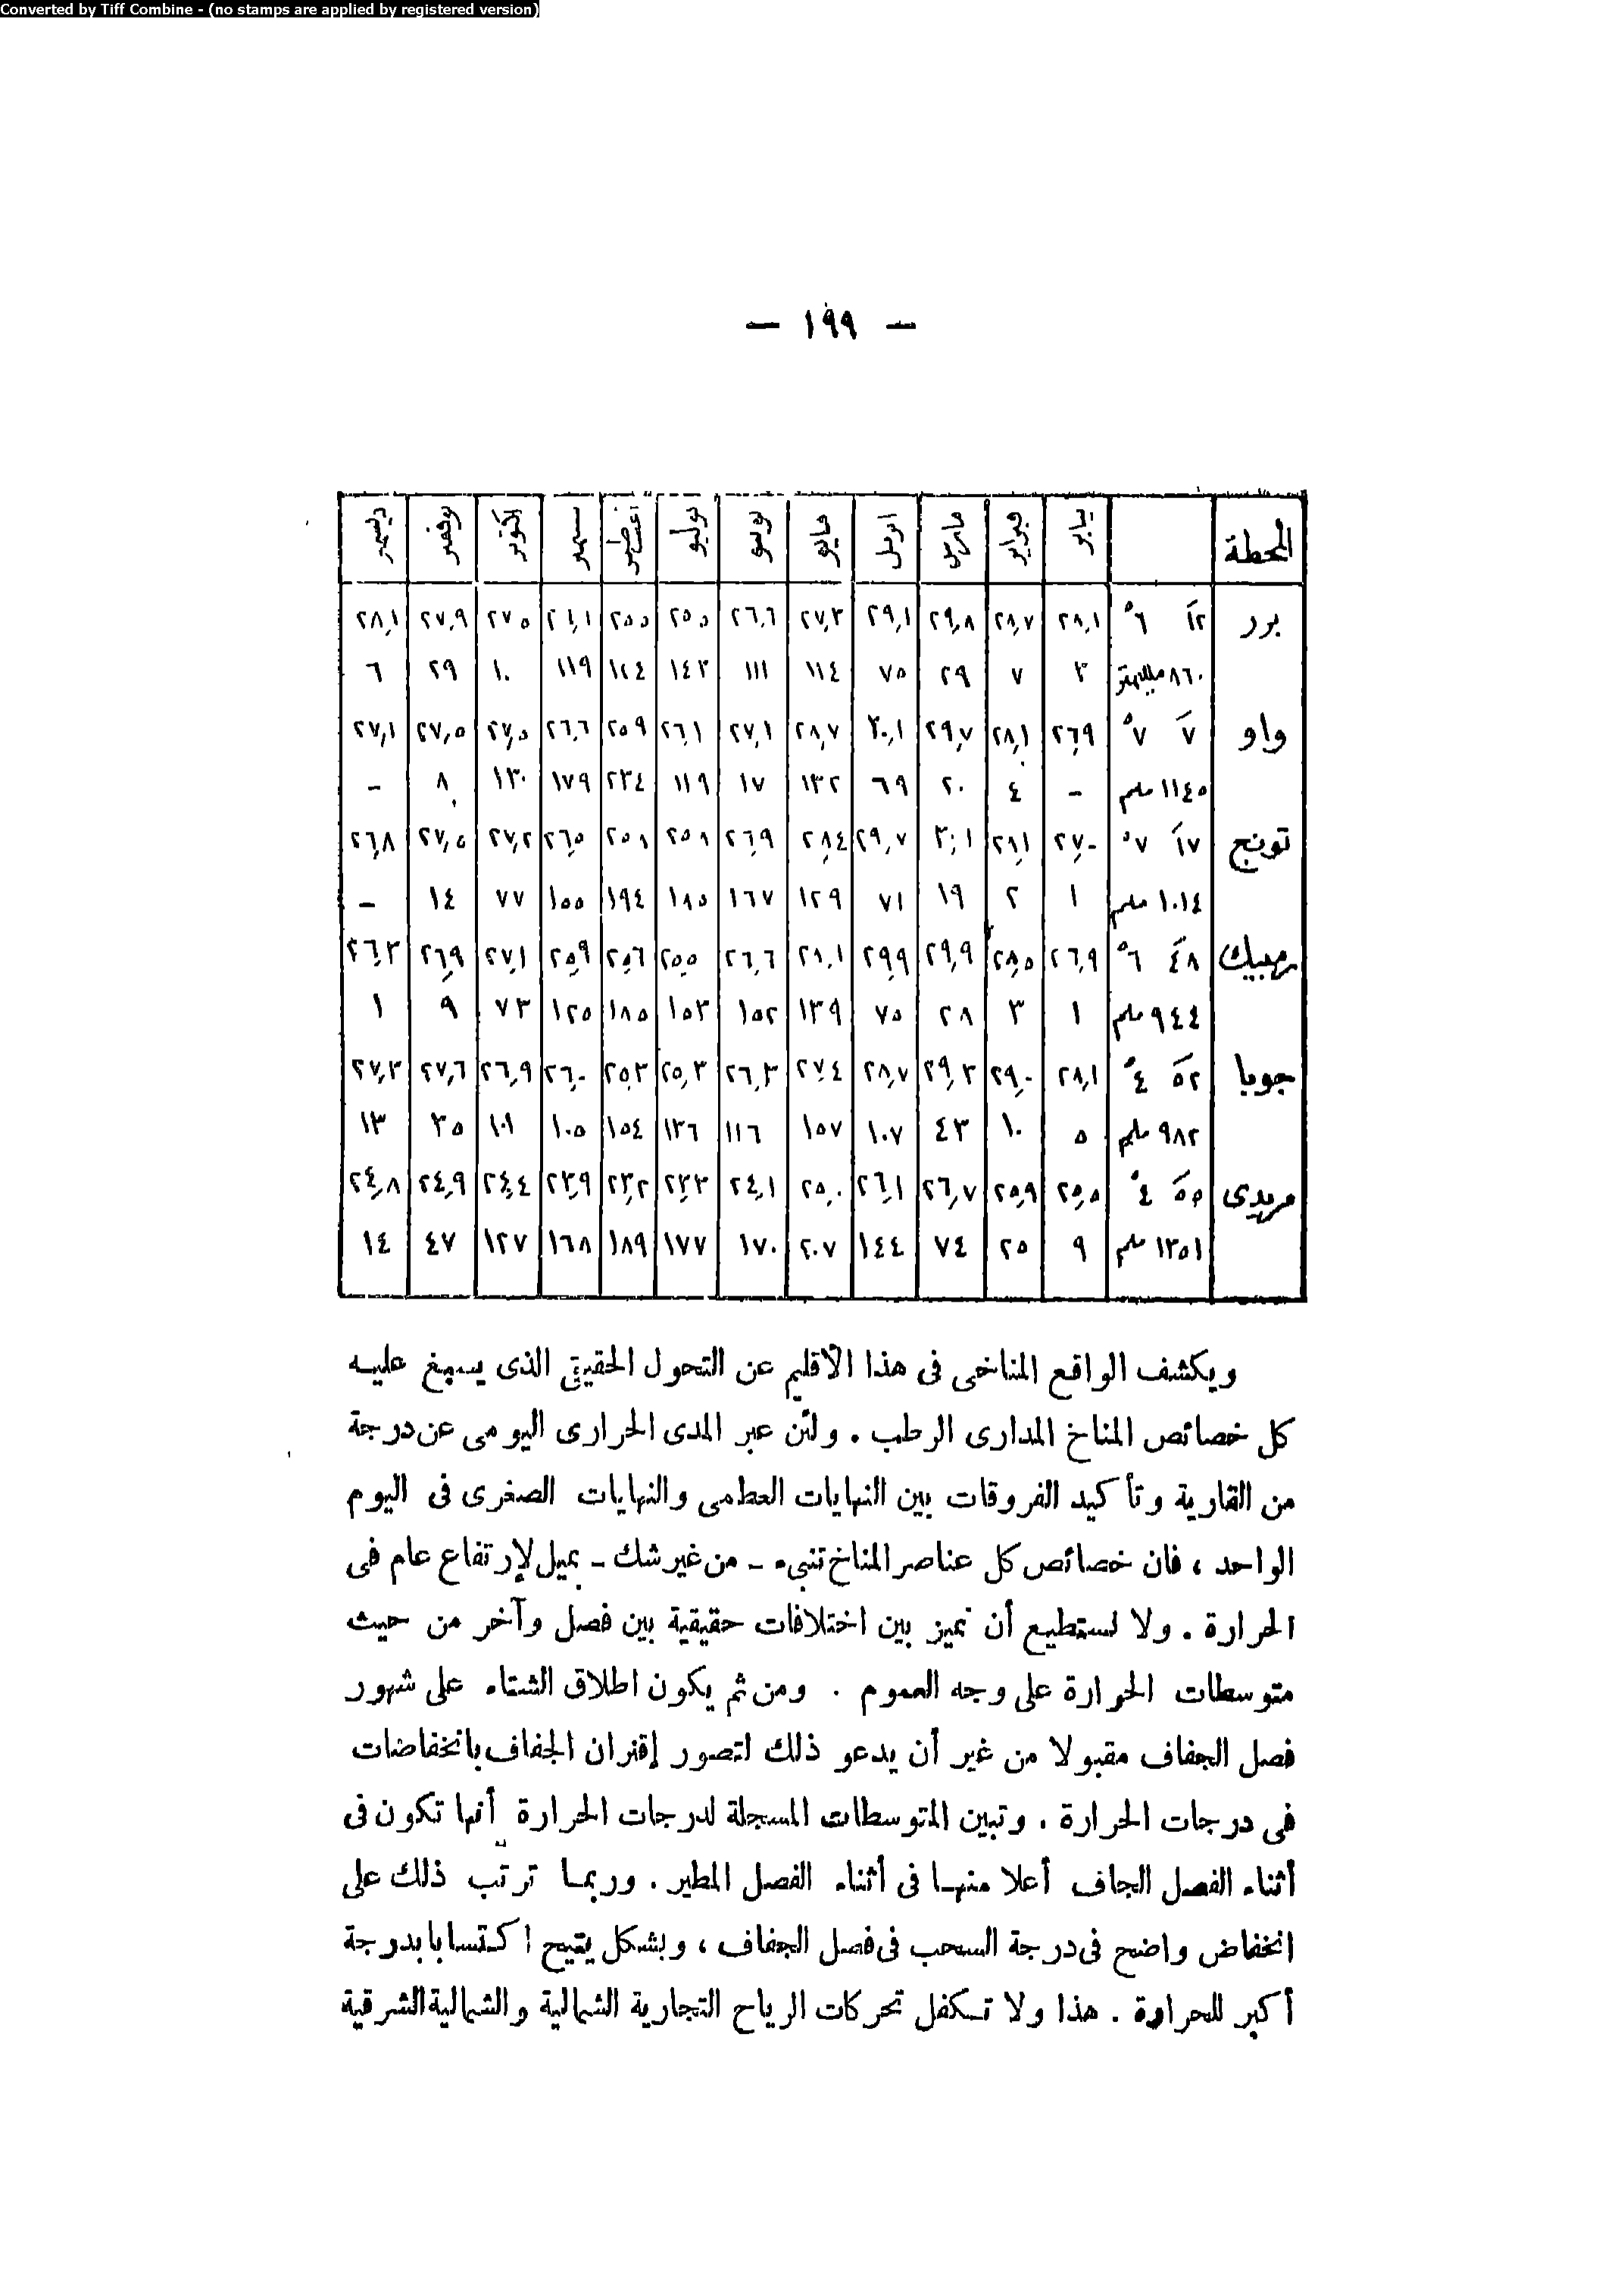 Converted by Tiff Combine - (no stamps are applied by registered version)
— ١٩٩ —
المحطة يناير فبراير مارس ابريل مايو يونيو يوليو أغسطس سبتمبر اكتوبر نوفمبر ديسمبر
بور ١٢َ ٦° ٢٨,١ ٢٨,٧ ٢٩,٨ ٢٩,١ ٢٧,٣ ٢٦,٦ ٢٥٥ ٢٥٥ ٢٦,١ ٢٧٥ ٢٧,٩ ٢٨,١
٨٦٠ ملليمتر ٣ ٧ ٢٩ ٧٥ ١١٤ ١١١ ١٤٣ ١٤٤ ١١٩ ١٠ ٢٩ ٦
واو ٧َ ٧° ٢٦,٩ ٢٨,١ ٢٩,٧ ٣٠,١ ٢٨,٧ ٢٧,١ ٢٦,١ ٢٥٩ ٢٦,٦ ٢٧,٥ ٢٧,٥ ٢٧,١
١١٤٥ ملم – ٤ ٢٠ ٦٩ ١٣٢ ١٧ ١١٩ ٢٣٤ ١٧٩ ١٣٠ ٨ –
تونج ١٧َ ٧° ٢٧,- ٢٨,١ ٣٠,١ ٢٩,٧ ٢٨,٤ ٢٦,٩ ٢٥٨ ٢٥٨ ٢٦,٥ ٢٧,٢ ٢٧,٥ ٢٦,٨
١٠١٤ ملم ١ ٢ ١٩ ٧١ ١٢٩ ١٦٧ ١٨٥ ١٩٤ ١٥٥ ٧٧ ١٤ –
رمبيك ٤٨َ ٦° ٢٦,٩ ٢٨,٥ ٢٩,٩ ٢٩٩ ٢٨,١ ٢٦,٦ ٢٥,٥ ٢٥,٦ ٢٥,٩ ٢٧,١ ٢٦,٩ ٢٦,٣
٩٤٤ ملم ١ ٣ ٢٨ ٧٥ ١٣٩ ١٥٢ ١٥٣ ١٨٥ ١٢٥ ٧٣ ٩ ١
جوبا ٥٢َ ٤° ٢٨,١ ٢٩,- ٢٩,٣ ٢٨,٧ ٢٧,٤ ٢٦,٣ ٢٥,٣ ٢٥,٣ ٢٦,- ٢٦,٩ ٢٧,٦ ٢٧,٣
٩٨٢ ملم ٥ ١٠ ٤٣ ١٠٧ ١٥٧ ١١٦ ١٣٦ ١٥٤ ١٠٥ ١٠١ ٣٥ ١٣
مريدى ٥٥َ ٤° ٢٥,٥ ٢٥,٩ ٢٦,٧ ٢٦,١ ٢٥,٠ ٢٤,١ ٢٣,٣ ٢٣,٢ ٢٣,٩ ٢٤,٤ ٢٤,٩ ٢٤,٨
١٣٥١ ملم ٩ ٢٥ ٧٤ ١٤٤ ٢٠٧ ١٧٠ ١٧٧ ١٨٩ ١٦٨ ١٢٧ ٤٧ ١٤
ويكشف الواقع المناخى فى هذا الاقليم عن التحول الحقيقى الذى يسبغ عليه
كل خصائص المناخ المدارى الرطب . ولئن عبر المدى الحرارى اليومى عن درجة
من القارية وتأكيد الفروقات بين النهايات العظمى والنهايات الصغرى فى اليوم
الواحد ، فان خصائص كل عناصر المناخ تنبىء - من غير شك - بميل لإرتفاع عام فى
الحرارة . ولا نستطيع أن نميز بين اختلافات حقيقية بين فصل وآخر من حيث
متوسطات الحرارة على وجه العموم . ومن ثم يكون اطلاق الشتاء على شهور
فصل الجفاف مقبولا من غير أن يدعو ذلك لتصور إقتران الجفاف بانخفاضات
فى درجات الحرارة . وتبين المتوسطات المسجلة لدرجات الحرارة أنها تكون فى
أثناء الفصل الجاف أعلا منها فى أثناء الفصل المطير . وربما ترتب ذلك على
انخفاض واضح فى درجة السحب فى فصل الجفاف ، وبشكل يتيح اكتسابا بدرجة
أكبر للحرارة . هذا ولا تكفل تحركات الرياح التجارية الشمالية والشمالية الشرقية